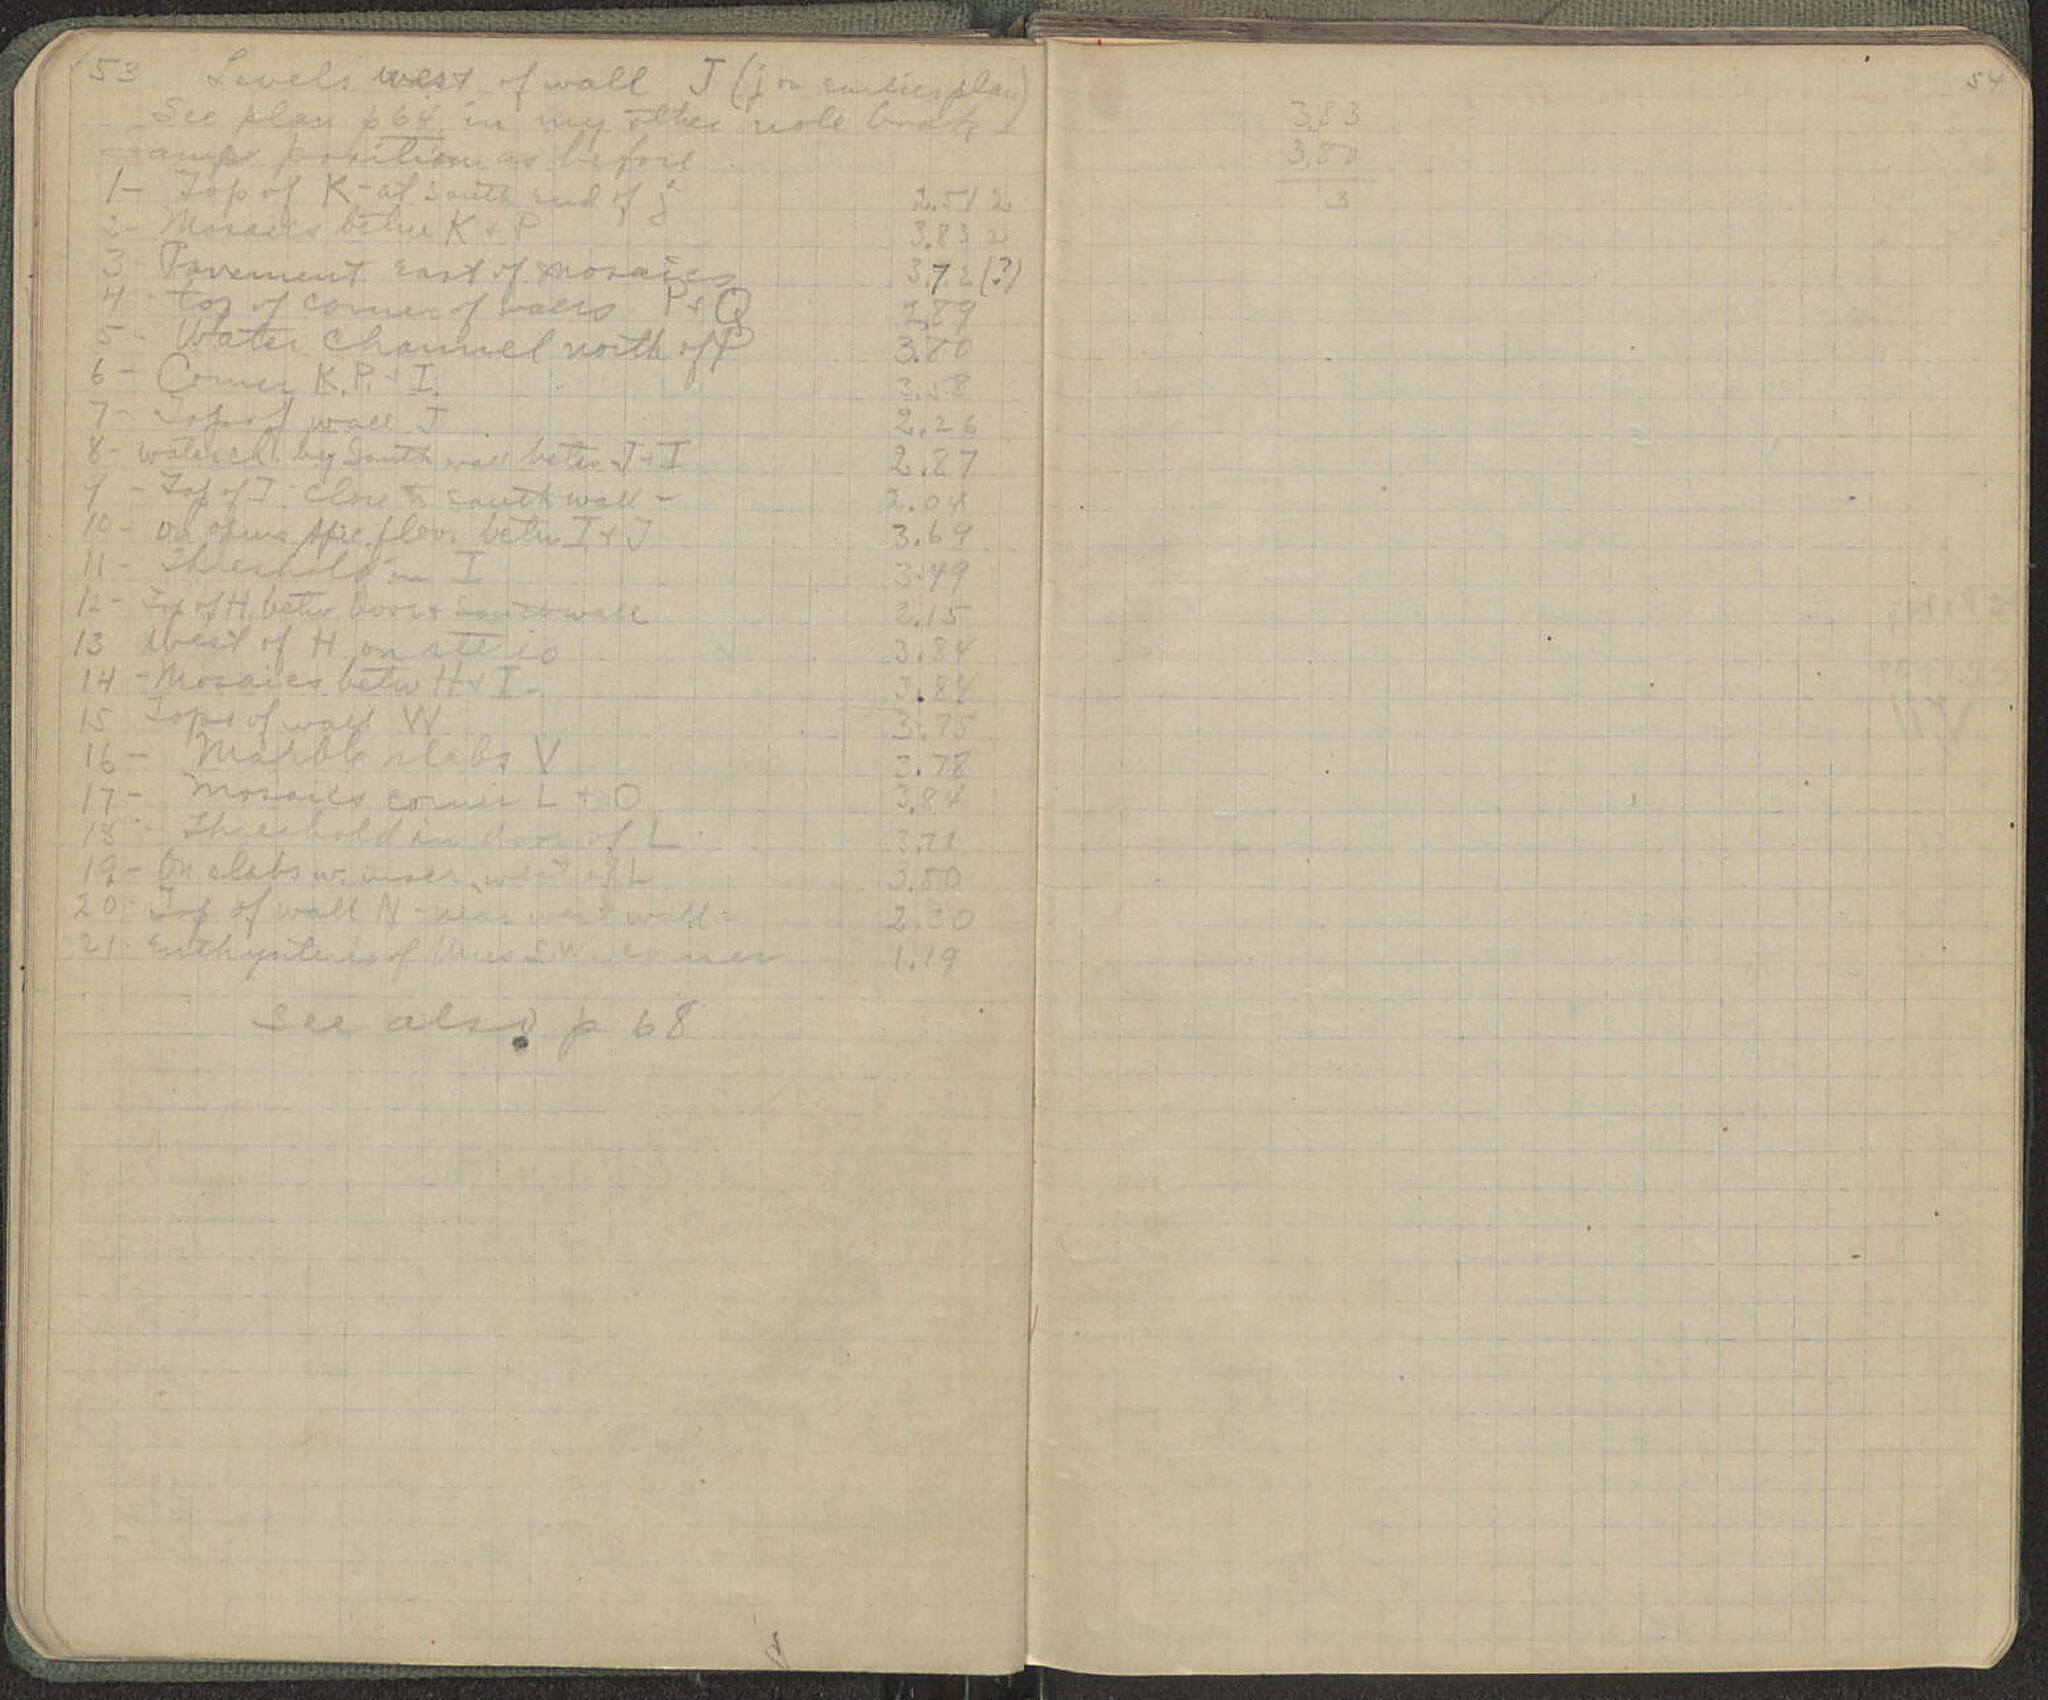 53 Levels west of wall J (j on earlier plan)
See plan p 64 in my other note book
Same position as before
1- Top of K - at South end of j 2.51 2
2- Mosaics betw K + P 3.83 2
3- Pavement east of mosaics 3.72 (?)
4- top of corner of walls P + Q 2.89
5- Water channel north of P 3.80
6- Corner K. P. + I. 3.58
7- Top of wall J 2.26
8- water ch. by South wall betw J + I 2.87
9- Top of I close to south wall - 2.04
10- on opus floor betw I + J 3.69
11- Threshold in I 3.49
12- Top of H. betw. Door + South wall 2.15
13 West of H on 3.84
14- Mosaics betw H + I - 3.84
15 Tops of wall W 3.75
16- Marble slabs V 3.78
17- Mosaics corner L + O 3.84
18- Threshold in door of L 3.71
19- On slabs w. inscr. west of L 3.80
20- Top of wall N - near west wall - 2.30
21- Euthynteria of S.W. corner 1.19
See also p 68
54
3.83
3.80
3